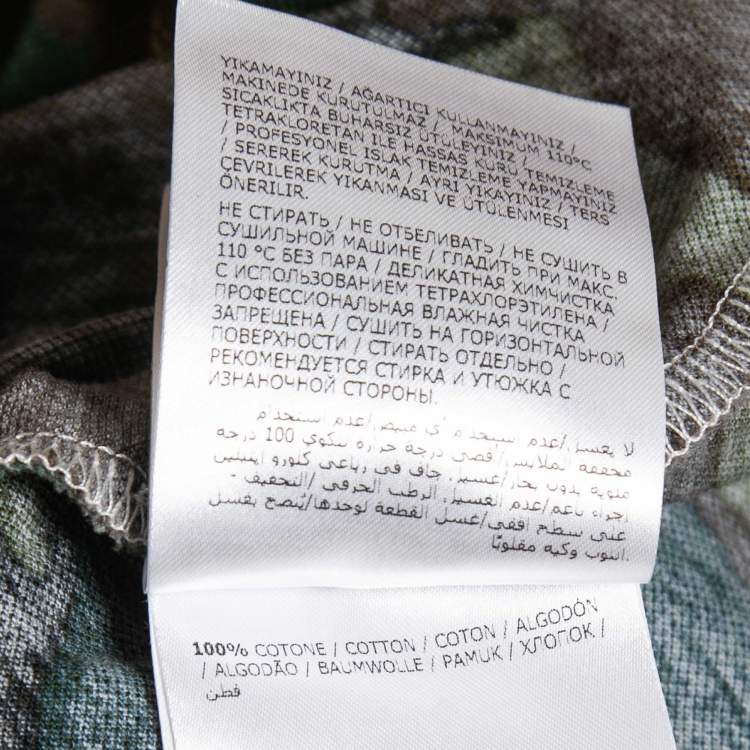 YIKAMAYINIZ / AĞARTICI KULLANMAYINIZ /
MAKINEDE KURUTULMAZ / MAKSIMUM 110°C
SICAKLIKTA BUHARSIZ ÜTÜLEYINIZ /
TETRAKLORETAN ILE HASSAS KURU TEMIZLEME
/ PROFESYONEL ISLAK TEMIZLEME YAPMAYINIZ
/ SEREREK KURUTMA / AYRI YIKAYINIZ / TERS
ÇEVRILEREK YIKANMASI VE ÜTÜLENMESI
ÖNERILIR.
НЕ СТИРАТЬ / НЕ ОТБЕЛИВАТЬ / НЕ СУШИТЬ В
СУШИЛЬНОЙ МАШИНЕ / ГЛАДИТЬ ПРИ МАКС.
110 °C БЕЗ ПАРА / ДЕЛИКАТНАЯ ХИМЧИСТКА
С ИСПОЛЬЗОВАНИЕМ ТЕТРАХЛОРЭТИЛЕНА /
ПРОФЕССИОНАЛЬНАЯ ВЛАЖНАЯ ЧИСТКА
ЗАПРЕЩЕНА / СУШИТЬ НА ГОРИЗОНТАЛЬНОЙ
ПОВЕРХНОСТИ / СТИРАТЬ ОТДЕЛЬНО /
РЕКОМЕНДУЕТСЯ СТИРКА И УТЮЖКА С
ИЗНАНОЧНОЙ СТОРОНЫ.
لا يغسل/عدم استخدام أي مبيض/عدم استخدام
مجففة الملابس/أقصى درجة حرارة للكوي 100 درجة
مئوية بدون بخار/غسيل جاف في رباعي كلورو إيثيلين
إجراء ناعم/عدم الغسيل الرطب الحرفي/التجفيف -
على سطح أفقي/غسل القطعة لوحدها/يُنصح بغسل
الثوب وكيه مقلوبًا.
100% COTONE / COTTON / COTON / ALGODÓN
/ ALGODÃO / BAUMWOLLE / PAMUK / ХЛОПОК /
قطن